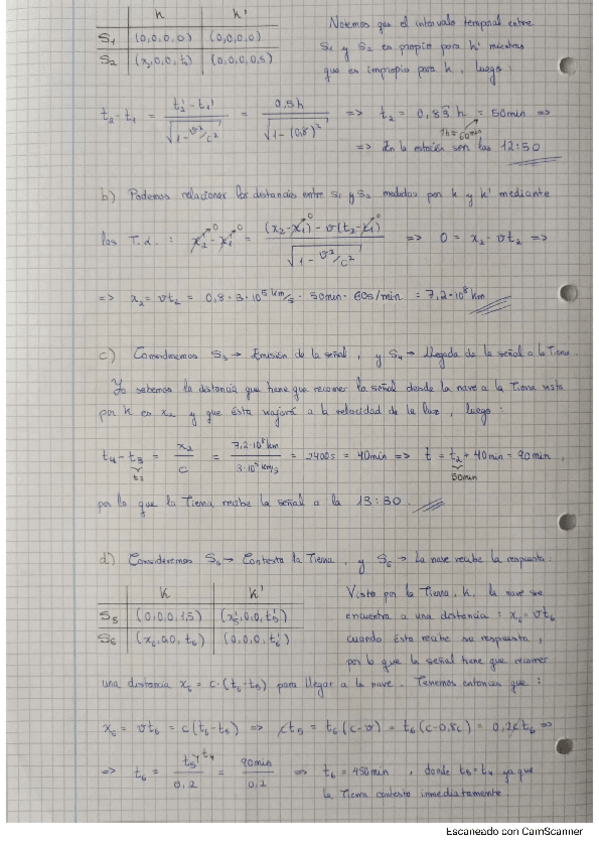 k k'
S₁ (0,0,0,0) (0,0,0,0)
S₂ (x₂,0,0,t₂) (0,0,0,0,5)
Notemos que el intervalo temporal entre
S₁ y S₂ es propio para k' mientras
que es impropio para k, luego:
t₂-t₁ = (t₂'-t₁')/√(1-v²/c²) = 0,5h/√(1-(0,8)²) => t₂ = 0,83 h = 50min =>
1h = 60min
=> En la estación son las 12:50
b) Podemos relacionar las distancias entre S₁ y S₂ medidas por k y k' mediante
las T.L. : x₂'-x₁' = ((x₂-x₁)-v(t₂-t₁))/√(1-v²/c²) => 0 = x₂-vt₂ =>
0 0 0 0
=> x₂ = vt₂ = 0,8·3·10⁵ km/s · 50min · 60s/min = 7,2·10⁸ km
c) Consideremos S₃ → Emisión de la señal, y S₄ → Llegada de la señal a la Tierra.
Ya sabemos la distancia que tiene que recorrer la señal desde la nave a la Tierra vista
por k es x₂ y que ésta viajará a la velocidad de la luz, luego:
t₄-t₃ = x₂/c = 7,2·10⁸km/3·10⁵km/s = 2400s = 40min => t = t₂+40min = 90min,
t₂ 50min
por lo que la Tierra recibe la señal a la 13:30.
d) Consideremos S₅ → Contesta la Tierra, y S₆ → La nave recibe la respuesta.
k k'
S₅ (0,0,0,1,5) (x₅',0,0,t₅')
S₆ (x₆,0,0,t₆) (0,0,0,t₆')
Visto por la Tierra, k, la nave se
encuentra a una distancia : x₆ = vt₆
cuando ésta recibe su respuesta,
por lo que la señal tiene que recorrer
una distancia x₆ = c·(t₆-t₅) para llegar a la nave. Tenemos entonces que :
x₆ = vt₆ = c(t₆-t₅) => ct₅ = t₆(c-v) = t₆(c-0,8c) = 0,2ct₆ =>
=> t₆ = t₅/0,2 = 90min/0,2 => t₆ = 450min, donde t₅=t₄ ya que
t₄
la Tierra contesta inmediatamente.
Escaneado con CamScanner